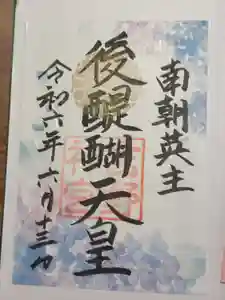 南朝英主
後醍醐天皇
令和六年六月十三日